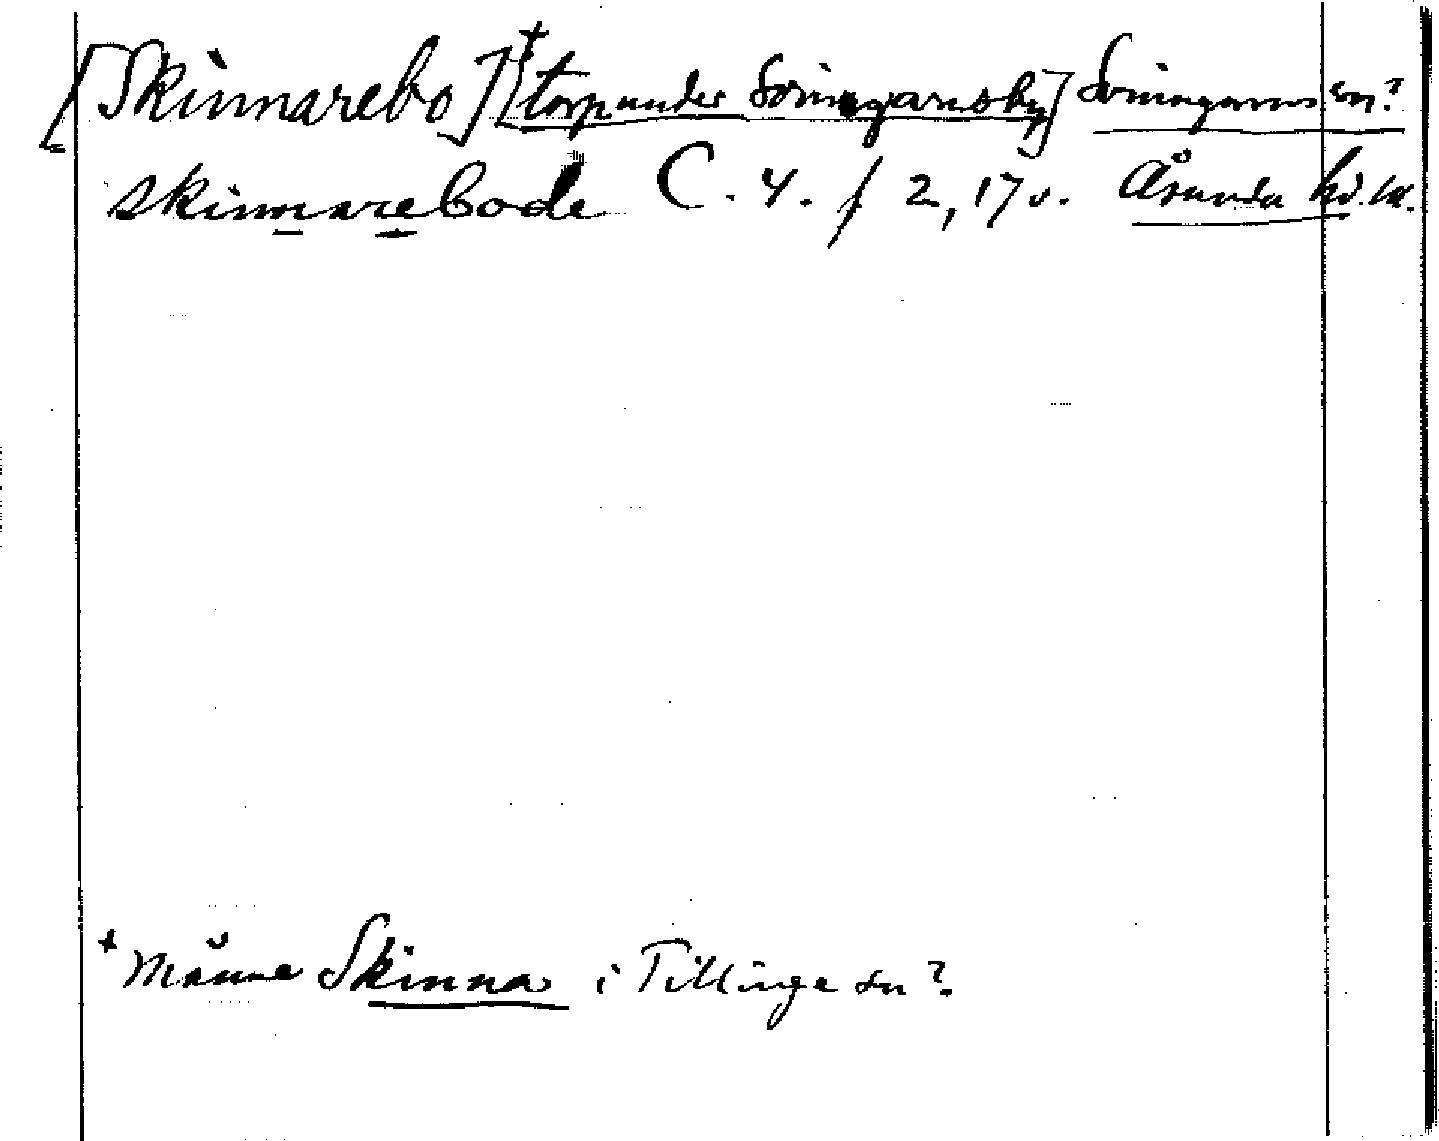 [Skinnarebo] [+torp under Sörsingarnsby] Sörsingarns sn?
skinnarebode C. 4. f 2, 17 v. Åsunda hd. U.
+ Månne Skinna i Tillinge sn?